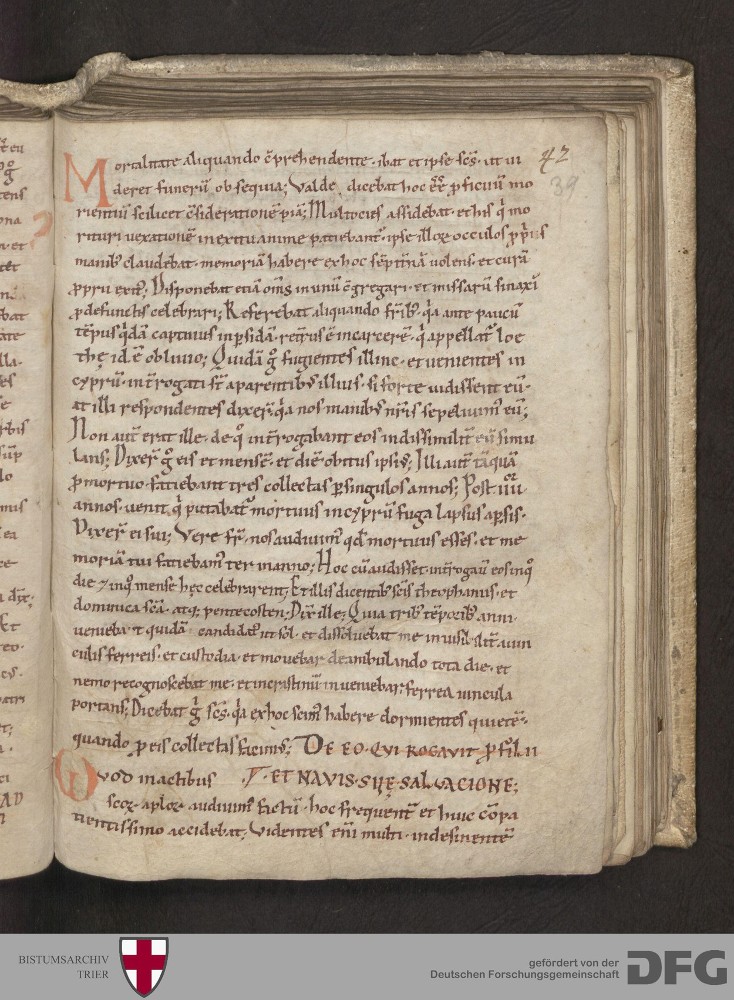 Mortalitate aliquando c̄prehendente · ibat et ipse sc̄s · ut vi
42
39
deret funerū obsequia; Valde dicebat hoc eē̄ ꝓficuū mo
rientiū scilicet c̄siderationē piā; Multocies assidebat · et his q̇ mo
rituri vexationē in exitu anime patiebant᷑ · ipse illoꝝ occulos ꝓp̄iis
manib; claudebat · memoriā habere ex hoc sēpit̄nā volens · et curā
ꝓprii exit᷒; Disponebat etiā om̄s in unū c̄gregari · et missarū sinaxī
ꝓ defunctis celebrari; Referebat aliquando fr̄ib; q̇a ante paucū
tēpus q̇dā captiuus in ꝑsidā · retr̄sus ē in carcerē · q̇ appellat᷑ loe
thę id ē obliuio; Quidā g̊ fugientes illinc · et venientes in
cyprū · int̄rogati st̄ a parentib; illius · si forte vidissent eū ·
at illi respondentes dixer̄ · q̇a nos manib; nr̄is sepeliuim᷒ eū;
Non aut̄ erat ille · de q̊ int̄rogabant eos indissimilit̄ ei simu
lans; Dixer̄ g̊ eis et mensē · et diē obitus ipsi᷒; Illi aut̄ tāquā
ꝓ mortuo · faciebant tres collectas ꝑ singulos annos; Post IIII
annos · venit q̇ putabat᷑ mortuus in cyprū fuga lapsus a ꝑsis ·
Dixer̄ ei sui; Vere fr̄ · nos audiuim᷒ qđ mortuus esses · et me
moriā tui faciebam᷒ ter in anno; Hoc cū audisset · int̄rogauit eos in q̊
die ⁊ in q̊ mense hęc celebrarent; Et illis dicentib; sc̄is theophaniis · et
dominica sc̄a · atq; pentecosten; Dix̄ ille; Quia trib; tēporib; anni
veniebat quidā candidat᷒ ut sol · et dissoluebat me inuisibilit̄ a vin
culis ferreis · et custodia · et mouebar deambulando tota die · et
nemo recognoscebat me · et in crastinū inueniebar ferrea vincula
portans; Dicebat g̊ sc̄s · q̇a ex hoc scim᷒ habere dormientes quietē ·
quando ꝓ eis collectas facim᷒; DE EO · QVI ROGAVIT · ꝓ filii
Qvod in actibus T · ET NAVIS · SVĘ · SALVACIONE;
sc̄oꝝ · aploꝝ audiuim᷒ factū · hoc frequent̄ et huic cōpa
tientissimo accidebat; Videntes en̄i multi · indesinentē
BISTUMSARCHIV
TRIER
gefördert von der
Deutschen Forschungsgemeinschaft
DFG